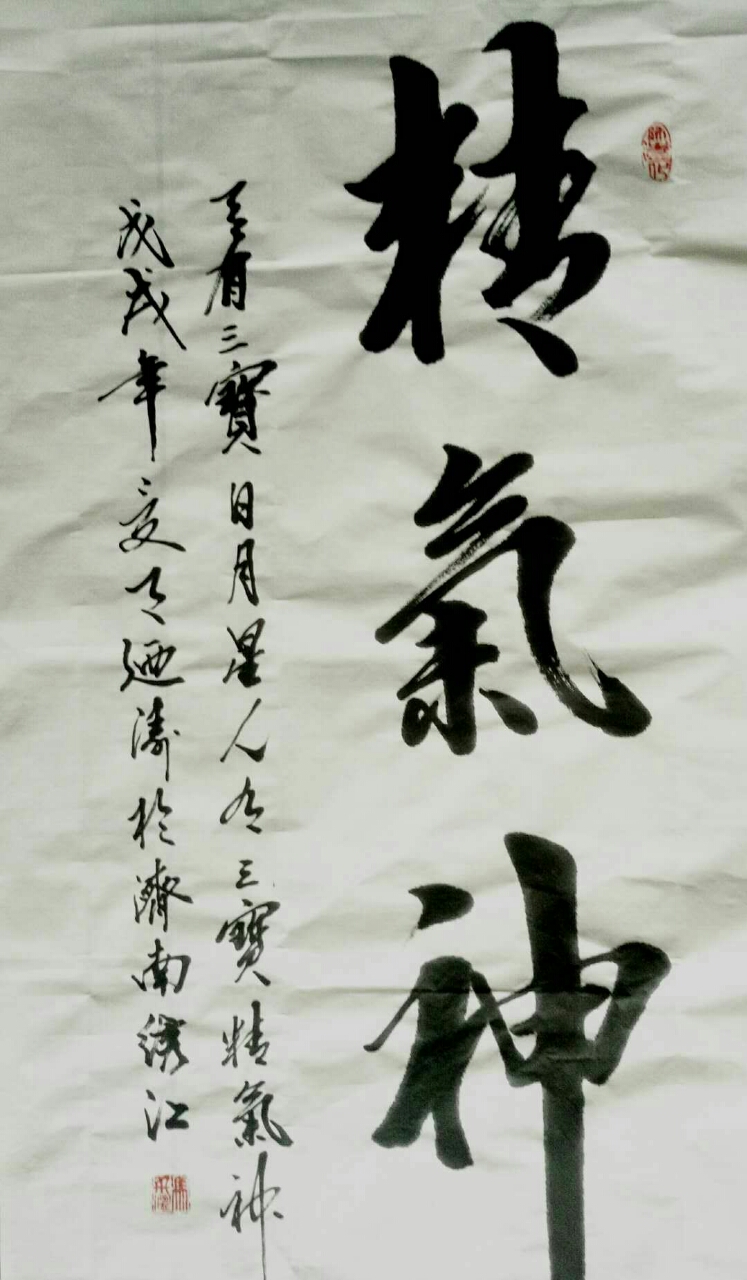 精氣神
天有三寶日月星人有三寶精氣神
戊戌年夏月廼濤於濟南绣江